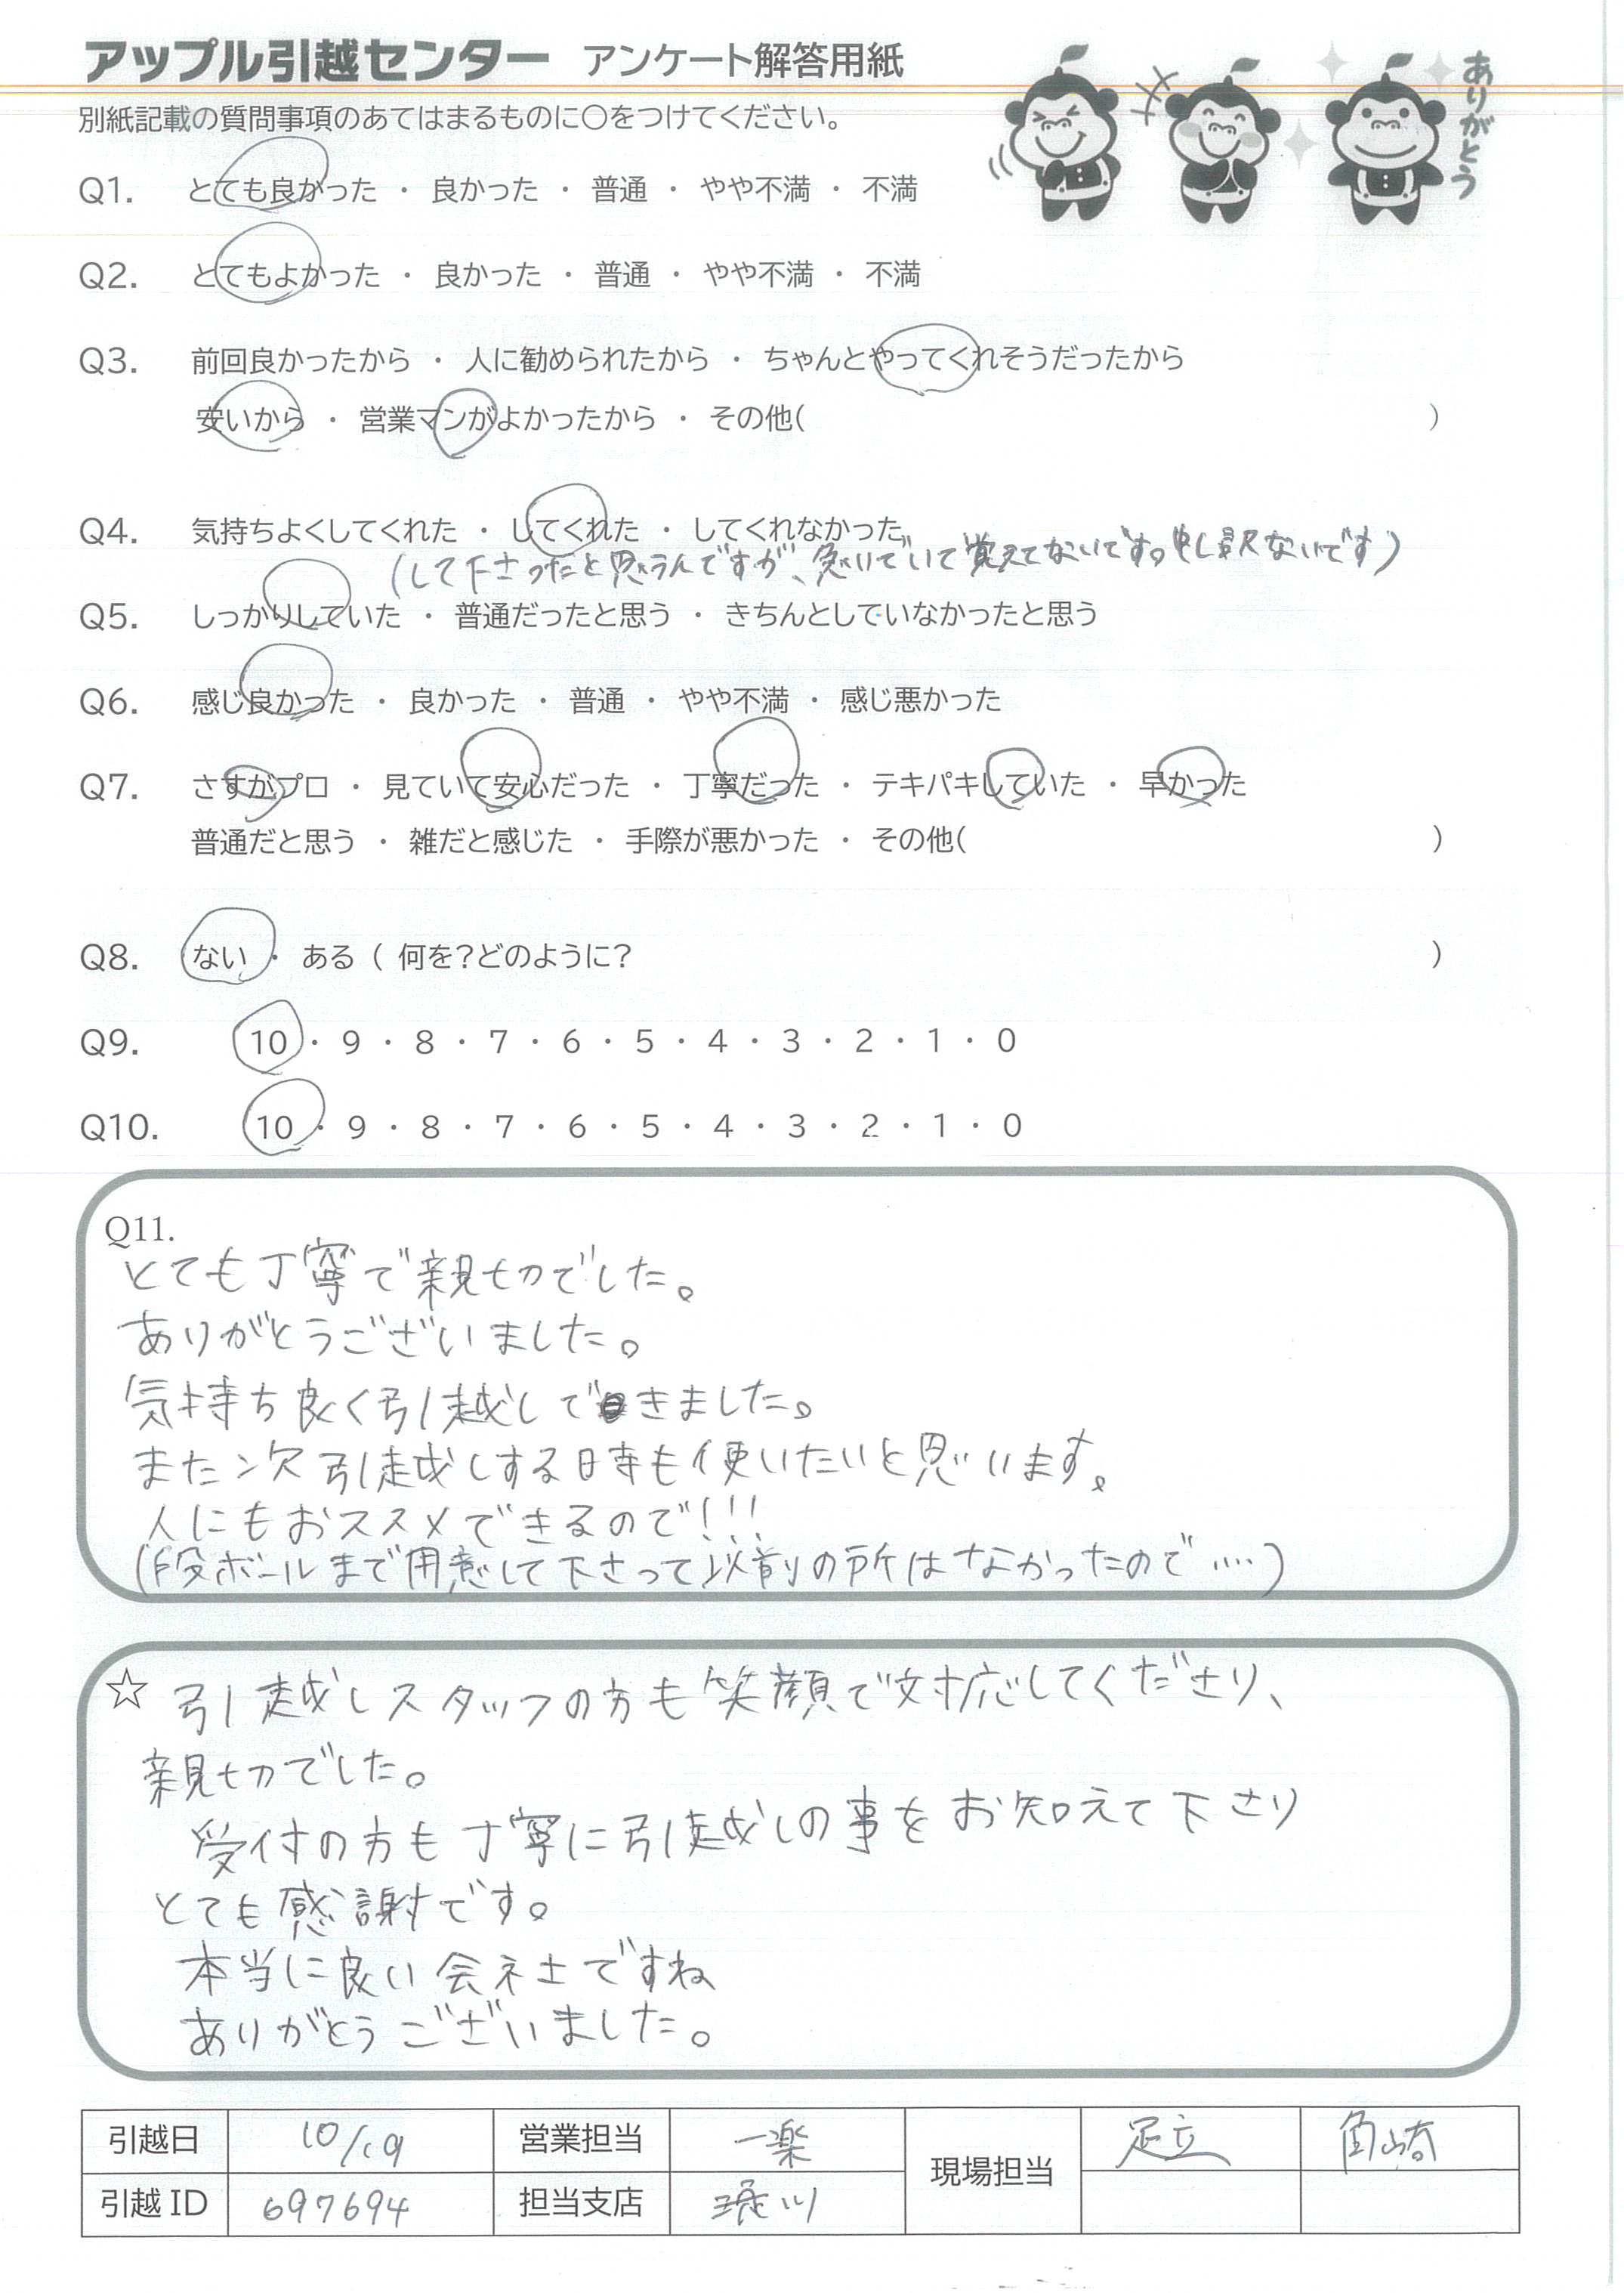 アップル引越センター アンケート解答用紙
ありがとう
別紙記載の質問事項のあてはまるものに〇をつけてください。
Q1. とても良かった ・ 良かった ・ 普通 ・ やや不満 ・ 不満
Q2. とてもよかった ・ 良かった ・ 普通 ・ やや不満 ・ 不満
Q3. 前回良かったから ・ 人に勧められたから ・ ちゃんとやってくれそうだったから
安いから ・ 営業マンがよかったから ・ その他( )
Q4. 気持ちよくしてくれた ・ してくれた ・ してくれなかった
(して下さったと思うんですが、急いでいて覚えてないです。申し訳ないです)
Q5. しっかりしていた ・ 普通だったと思う ・ きちんとしていなかったと思う
Q6. 感じ良かった ・ 良かった ・ 普通 ・ やや不満 ・ 感じ悪かった
Q7. さすがプロ ・ 見ていて安心だった ・ 丁寧だった ・ テキパキしていた ・ 早かった
普通だと思う ・ 雑だと感じた ・ 手際が悪かった ・ その他( )
Q8. ない ・ ある ( 何を?どのように? )
Q9. 10 ・ 9 ・ 8 ・ 7 ・ 6 ・ 5 ・ 4 ・ 3 ・ 2 ・ 1 ・ 0
Q10. 10 ・ 9 ・ 8 ・ 7 ・ 6 ・ 5 ・ 4 ・ 3 ・ 2 ・ 1 ・ 0
Q11.
とても丁寧で親切でした。
ありがとうございました。
気持ち良く引越しできました。
また次引越しする時も使いたいと思います。
人にもおススメできるので!!!
(段ボールまで用意して下さって以前の所はなかったので....)
☆ 引越しスタッフの方も笑顔で対応してくださり、
親切でした。
受付の方も丁寧に引越しの事をお知えて下さり
とても感謝です。
本当に良い会社ですね
ありがとうございました。
引越日 10/19 営業担当 一楽 現場担当 足立 角崎
引越ID 697694 担当支店 淀川